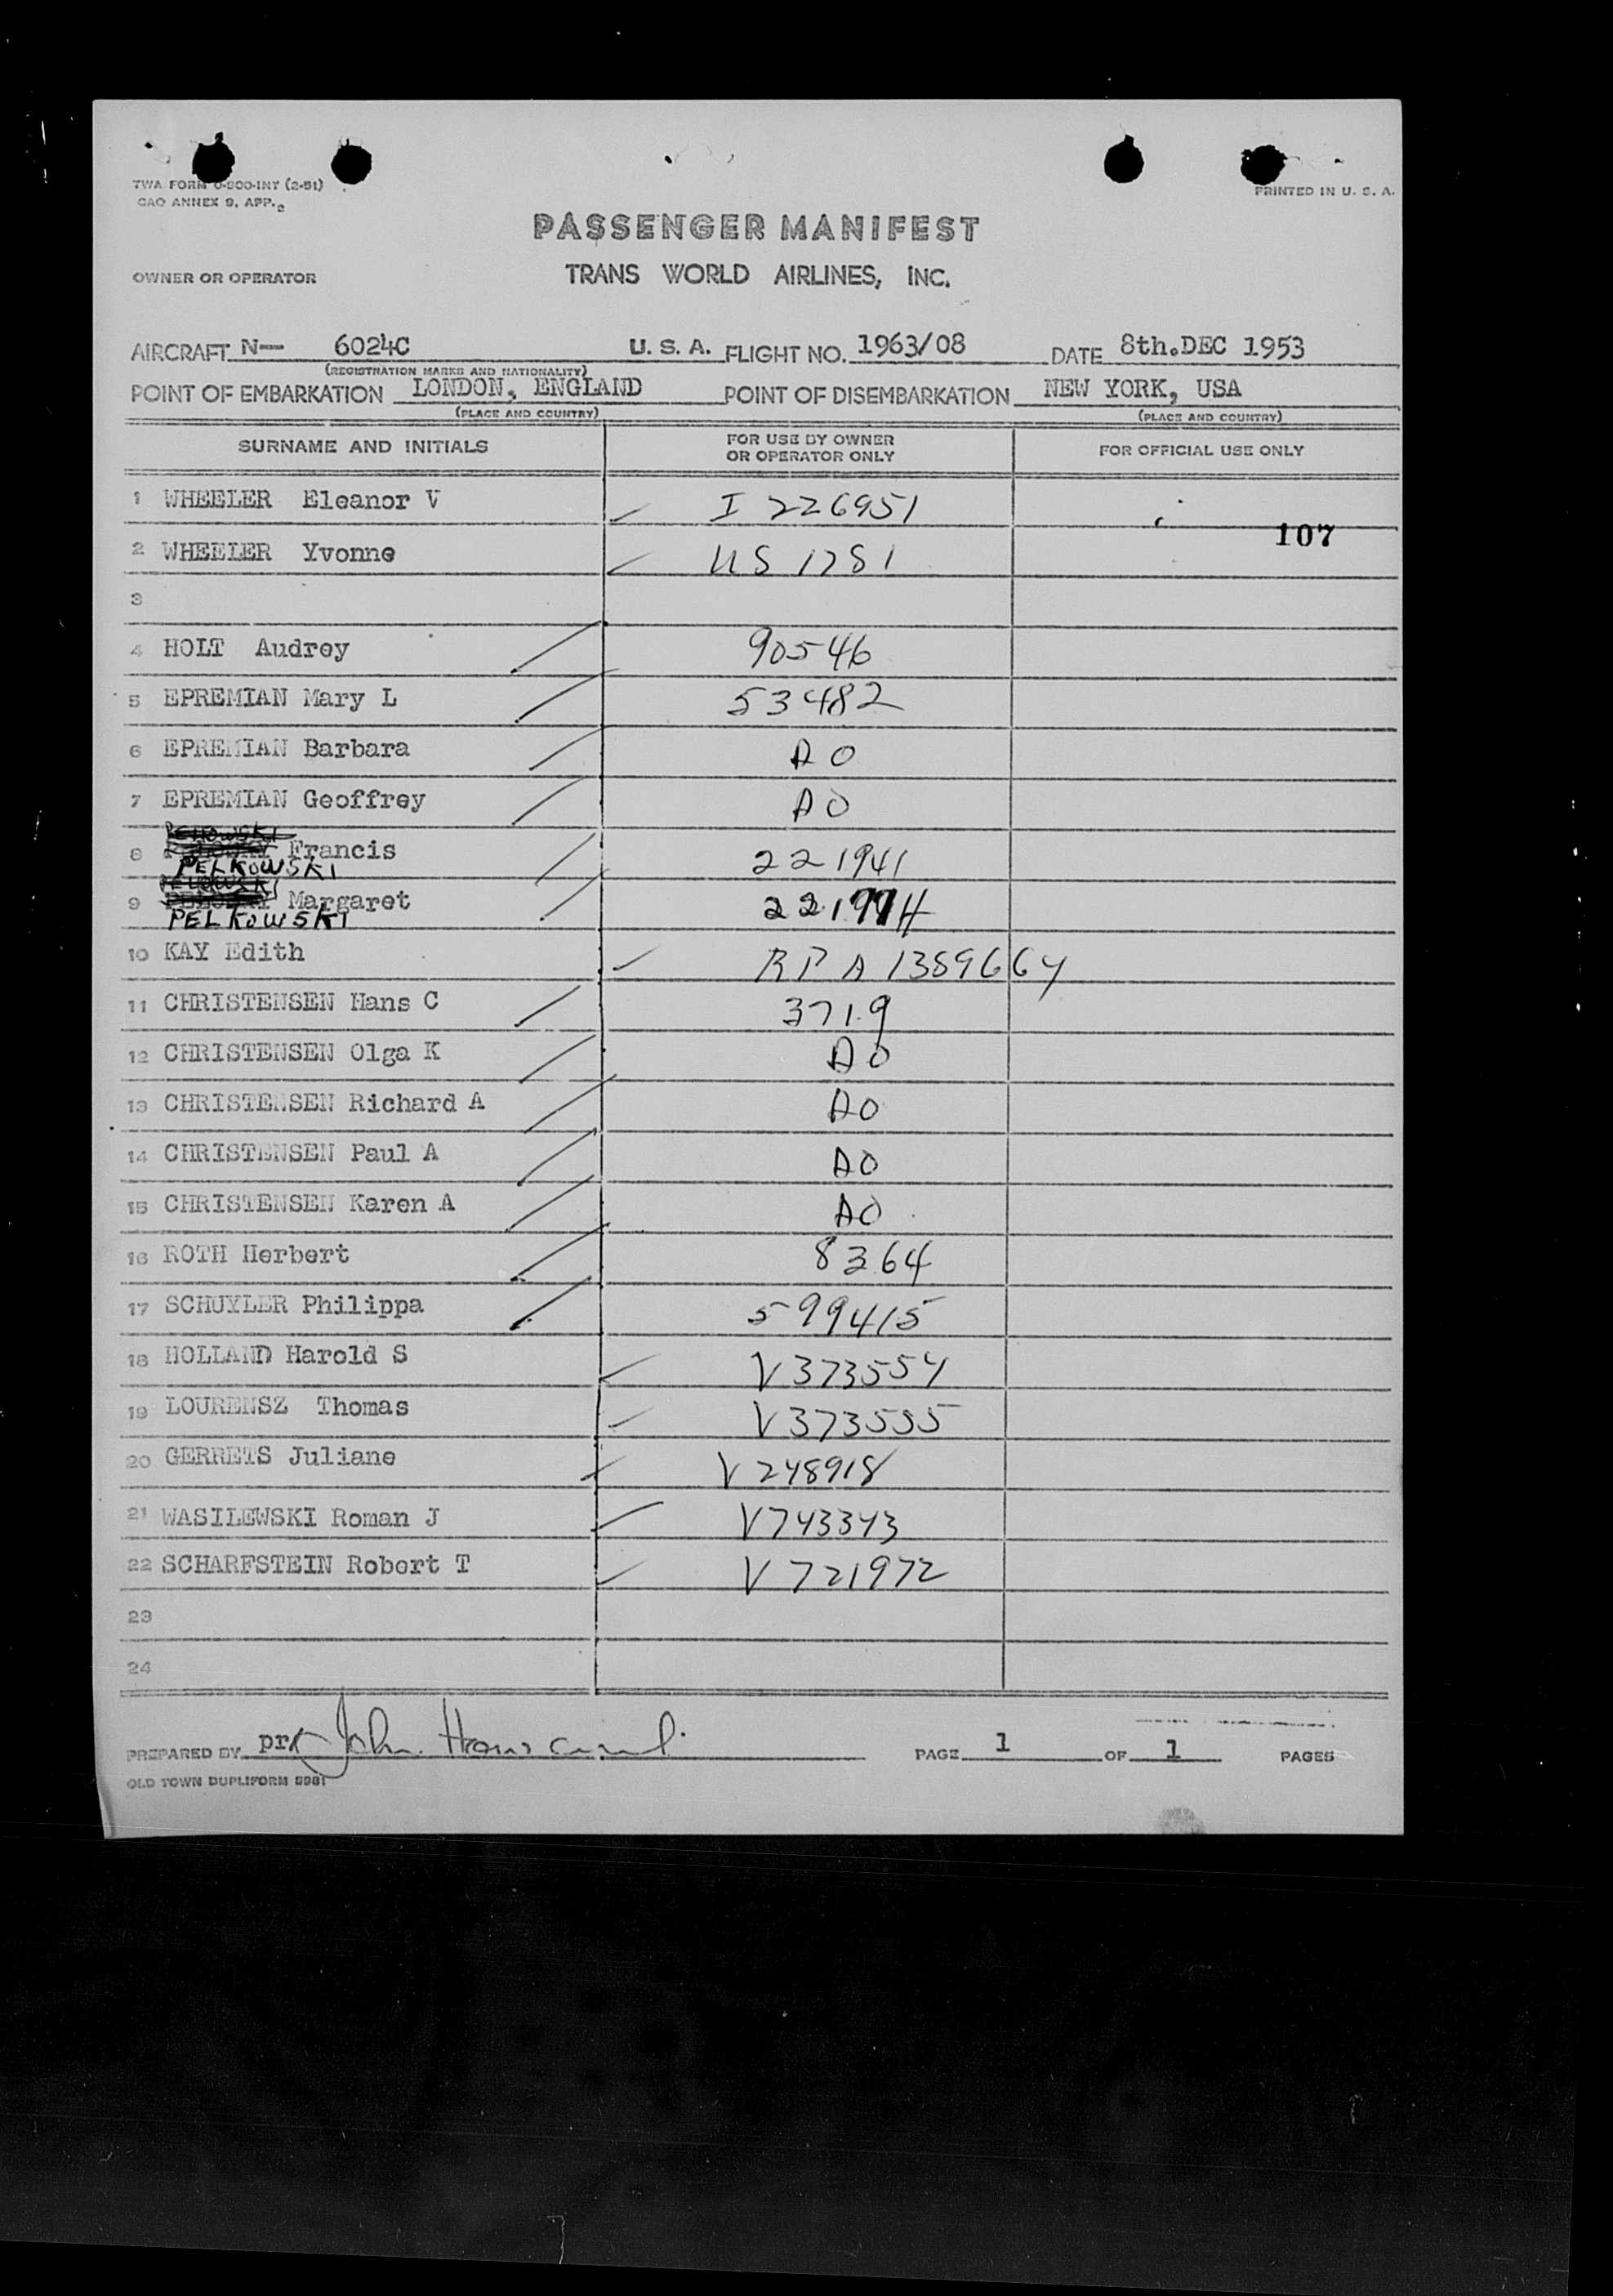 TWA FORM 0-800-INT (2-51)
CAO ANNEX 9, APP. 2
PRINTED IN U. S. A.
PASSENGER MANIFEST
OWNER OR OPERATOR TRANS WORLD AIRLINES, INC.
AIRCRAFT N— 6024C U. S. A. FLIGHT NO. 1963/08 DATE 8th.DEC 1953
(REGISTRATION MARKS AND NATIONALITY)
POINT OF EMBARKATION LONDON, ENGLAND POINT OF DISEMBARKATION NEW YORK, USA
(PLACE AND COUNTRY) (PLACE AND COUNTRY)
SURNAME AND INITIALS FOR USE BY OWNER OR OPERATOR ONLY FOR OFFICIAL USE ONLY
1 WHEELER Eleanor V I 226951
107
2 WHEELER Yvonne US 1781
3
4 HOLT Audrey 90546
5 EPREMIAN Mary L 53482
6 EPREMIAN Barbara AO
7 EPREMIAN Geoffrey AO
8 Francis 221941
PELKOWSKI
9 Margaret
PELKOWSKI
10 KAY Edith RP A 1389664
11 CHRISTENSEN Hans C 3719
12 CHRISTENSEN Olga K AO
13 CHRISTENSEN Richard A AO
14 CHRISTENSEN Paul A AO
15 CHRISTENSEN Karen A AO
16 ROTH Herbert 8364
17 SCHUYLER Philippa 599415
18 HOLLAND Harold S V 373554
19 LOURENSZ Thomas V 373555
20 GERRETS Juliane V 248918
21 WASILEWSKI Roman J V743343
22 SCHARFSTEIN Robert T V 721972
23
24
PREPARED BY pr John PAGE 1 OF 1 PAGES
OLD TOWN DUPLIFORM 5981